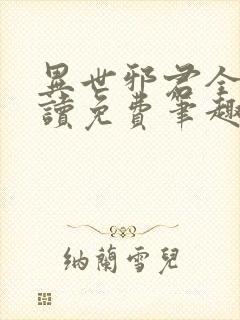 異世邪君全
讀免費筆趣
納蘭雪兒